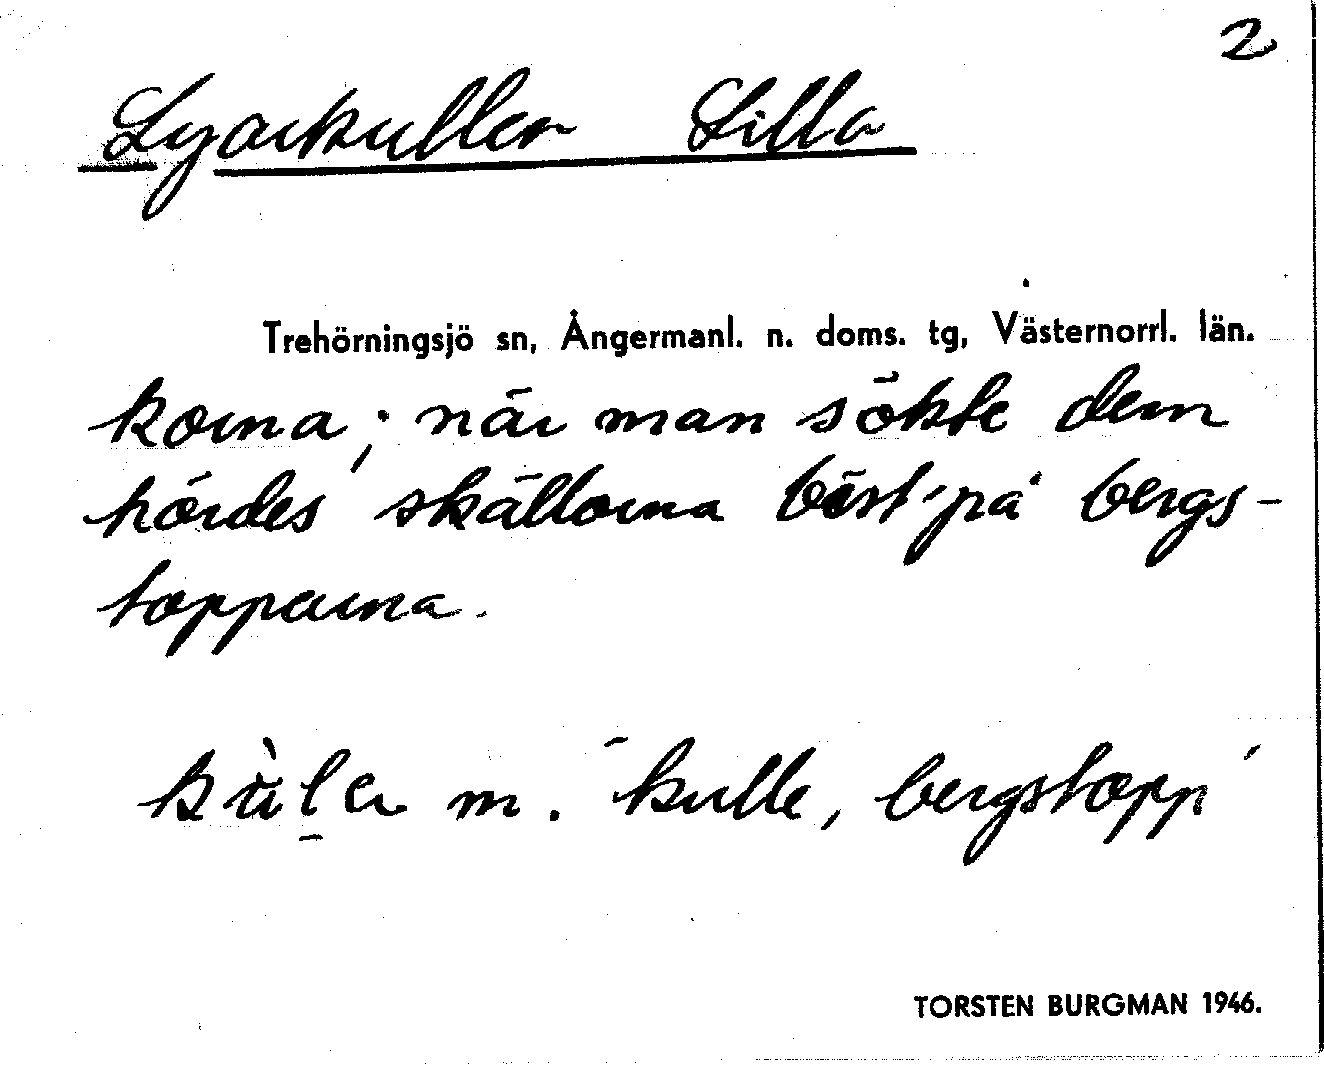 2
Lyarkullen Lilla
Trehörningsjö sn, Ångermanl. n. doms. tg, Västernorrl. län.
korna; när man sökte dem
hördes skällorna bäst på bergs-
topparna.
m. 'kulle, bergstopp'
TORSTEN BURGMAN 1946.